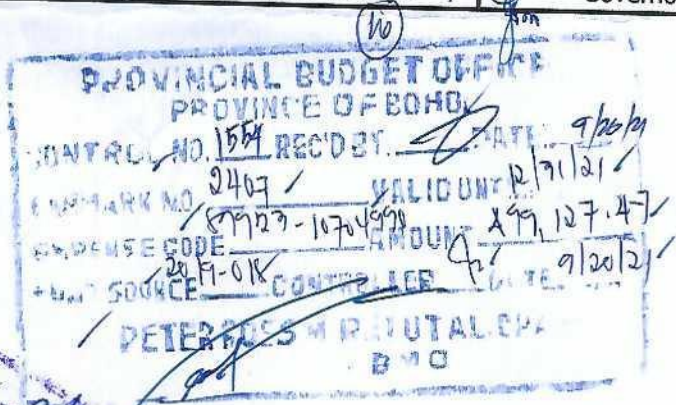 Governo
PROVINCIAL BUDGET OFFICE
PROVINCE OF BOHOL
CONTROL NO. 1554 REC'D BY. DATE 9/20/21
EARMARK NO. 2407 VALID UNTIL 12/31/21
EXPENSE CODE AMOUNT 499,127.47
FUND SOURCE 2019-018 CONTROLLER DATE 9/20/21
PETER ROSS M. RETUTAL, CPA
BMO